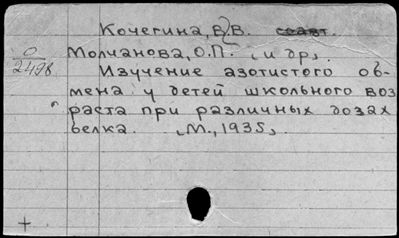 Кочегина, В.В. соавт.
О
2498
Молчанова, О.П. (и др.)
Изучение азотистого об-
мена у детей школьного воз
раста при различных дозах
белка. (М., 1935)